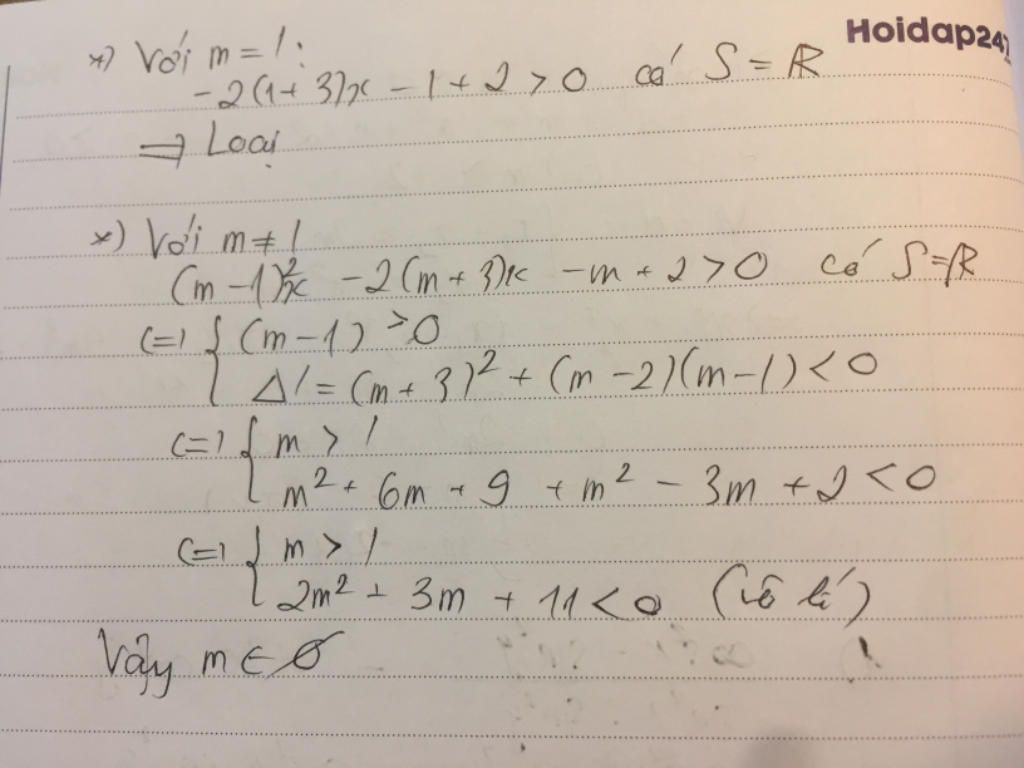 Hoidap247
*) Với m = 1:
-2(1+3)x - 1 + 2 > 0 có S = ℝ
=> Loại
*) Với m ≠ 1
(m-1)x² - 2(m+3)x - m + 2 > 0 có S=ℝ
<=> { (m-1) > 0
Δ' = (m+3)² + (m-2)(m-1) < 0
<=> { m > 1
m² + 6m + 9 + m² - 3m + 2 < 0
<=> { m > 1
2m² + 3m + 11 < 0 (vô lí)
Vậy m ∈ ∅